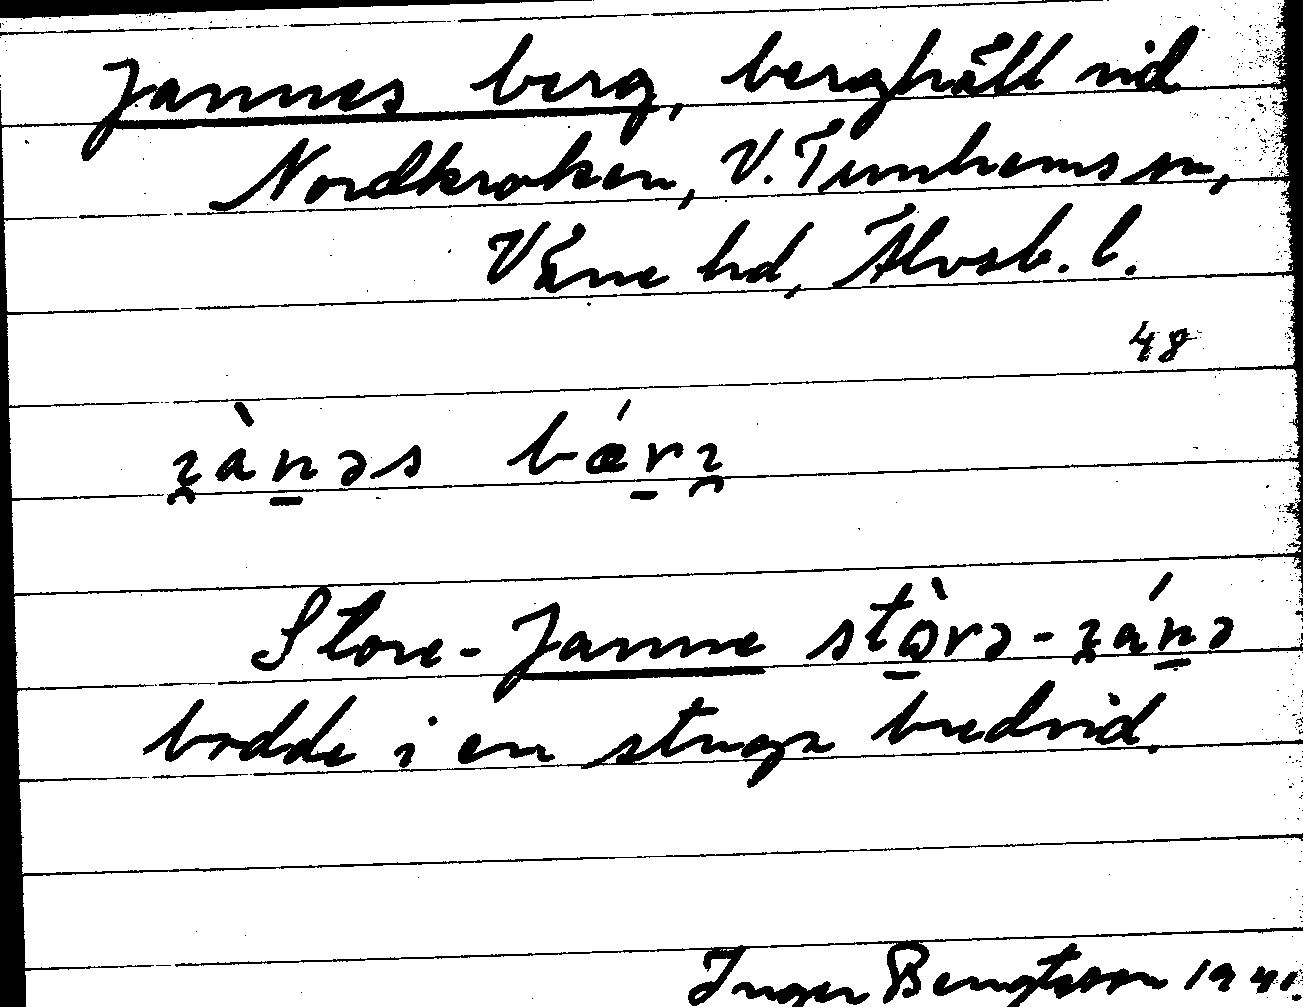 Jannes berg, berghäll vid
Nordkroken, V. Tunhems sn,
Väne hd, Älvsb. l.
48
Store-Janne
bodde i en stuga bredvid.
Inger Bengtsson 1941.